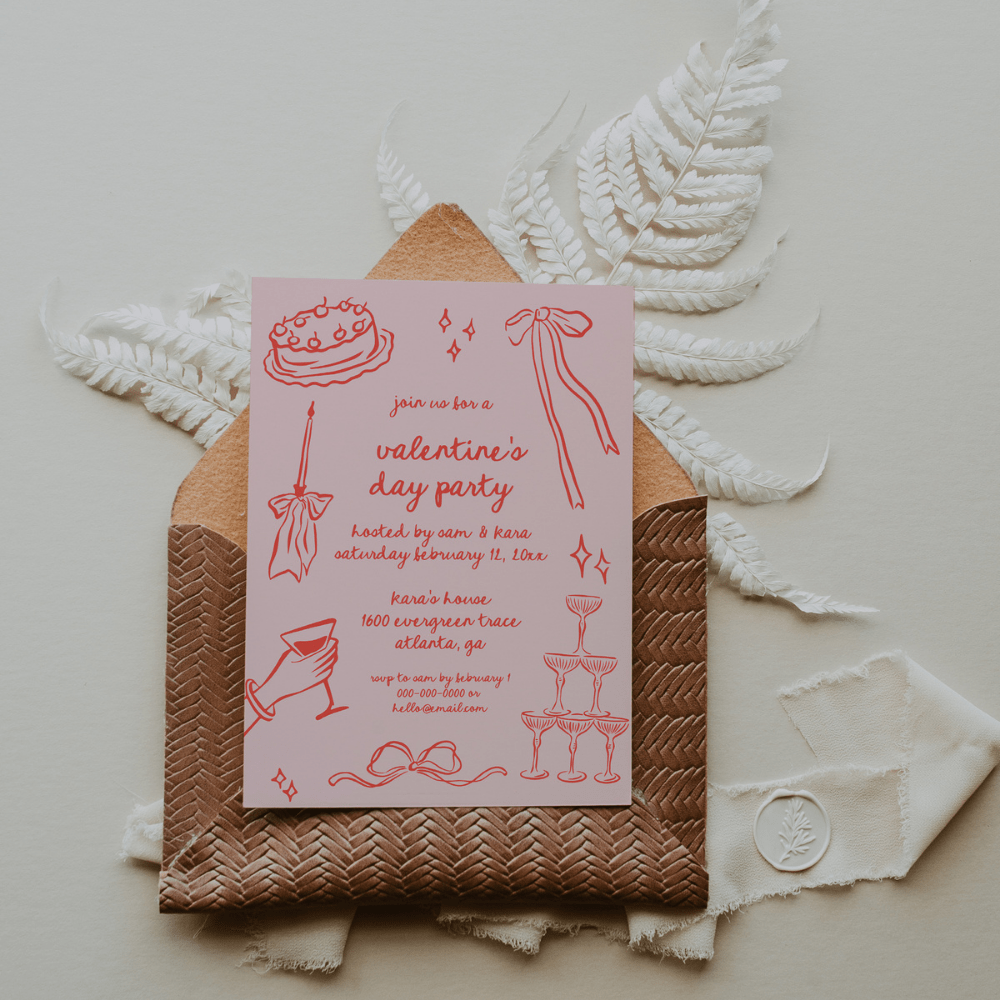 join us for a
valentine's
day party
hosted by sam & kara
saturday february 12, 20xx
kara's house
1600 evergreen trace
atlanta, ga
rsvp to sam by february 1
000-000-0000 or
hello@email.com